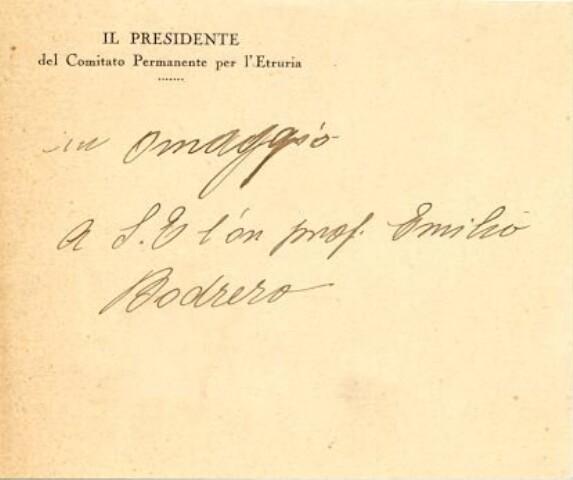 IL PRESIDENTE
del Comitato Permanente per l'Etruria
in omaggio
a S. E l'on prof. Emilio
Bodrero